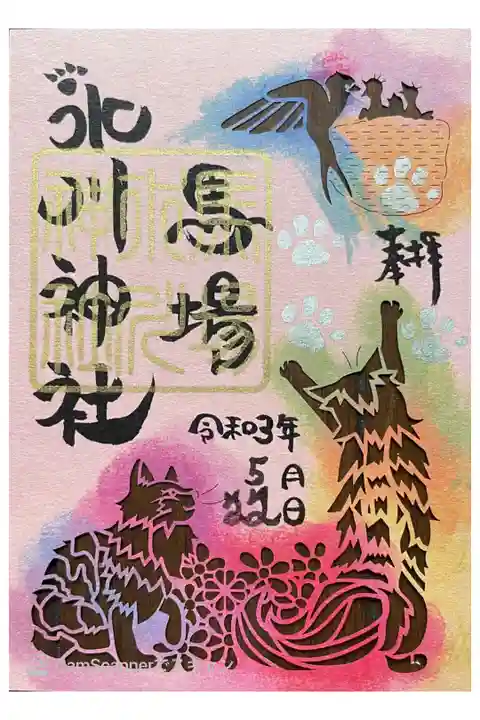 奉拝
馬場
氷川神社
令和3年
5月
22日
CamScanner